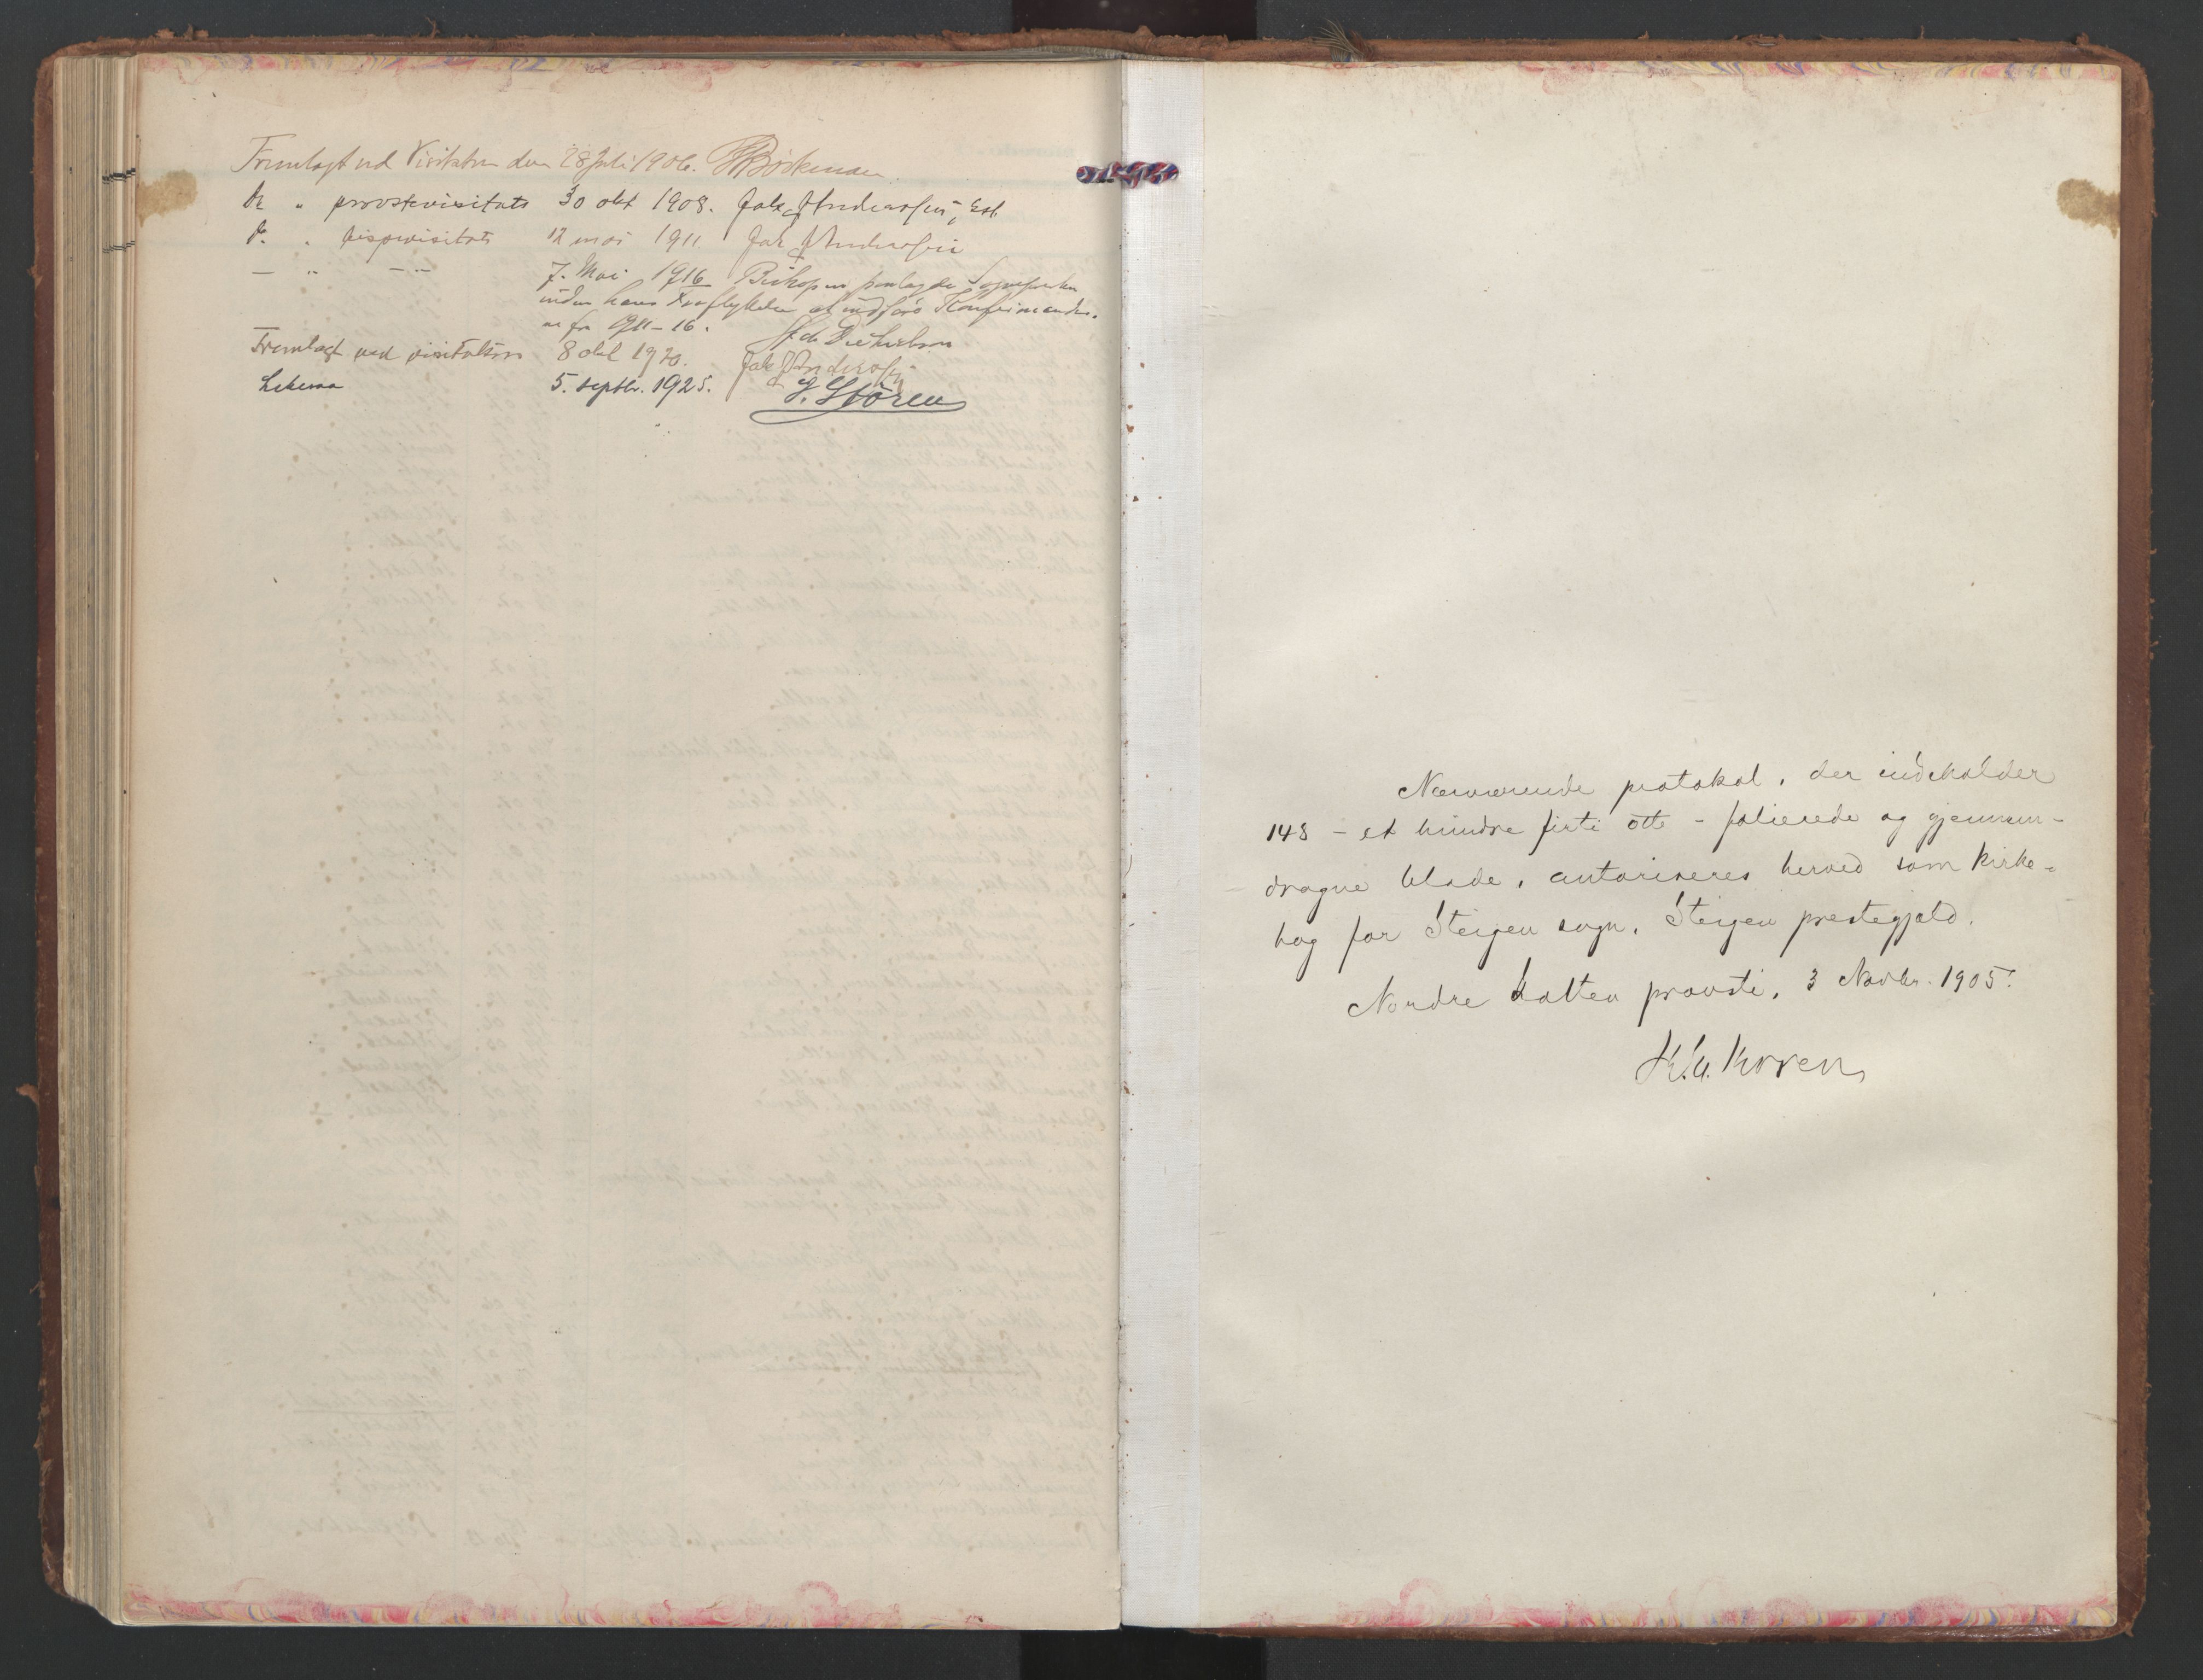 Fremlagt ved Visitatsen den 28 Juli 1906. Böckman.
Do " provstevisitats 30 okt 1908. Jak Anderssen, kst.
Do " bispevisitats 12 mai 1911 Jak Anderssen
— " — " — 7. Mai 1916 Biskopen paalagde Sognepresten
inden hans Fraflyttelse at indføre Konfirmander-
ne fra 1911-16.
Fremlagt ved visitatsen 8 okt 1920. Jak Anderssen
Likesaa 5. septbr. 1925. J. Støren
Nærværende protokol, der indeholder
148 – et hundre firti otte – folierede og gjennem-
dragne blade, autoriseres herved som kirke-
bog for Steigen sogn, Steigen prestegjæld.
Nordre Salten provsti, 3 Novbr. 1905.
Koren